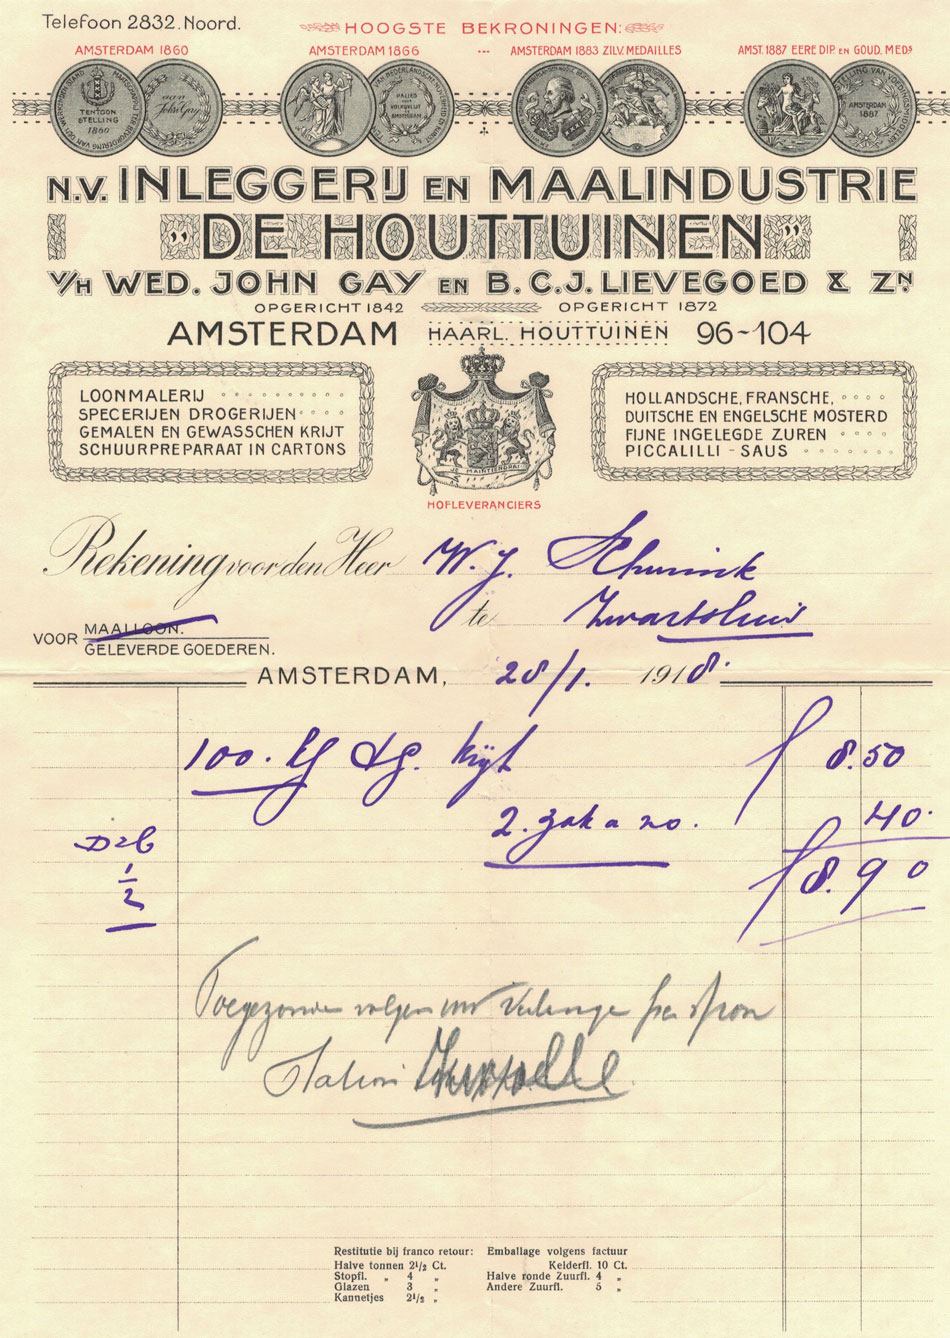 Telefoon 2832. Noord.
HOOGSTE BEKRONINGEN:
AMSTERDAM 1860
AMSTERDAM 1866
AMSTERDAM 1883 ZILV. MEDAILLES
AMST. 1887 EERE DIP. EN GOUD. MEDS
TENTOON
STELLING
1860
John Gay
AMSTERDAM
1887
N.V. INLEGGERIJ EN MAALINDUSTRIE
„DE HOUTTUINEN”
V/H WED. JOHN GAY EN B.C.J. LIEVEGOED & ZN.
OPGERICHT 1842 OPGERICHT 1872
AMSTERDAM HAARL. HOUTTUINEN 96-104
LOONMALERIJ
SPECERIJEN DROGERIJEN
GEMALEN EN GEWASSCHEN KRIJT
SCHUURPREPARAAT IN CARTONS
JE MAINTIENDRAI
HOFLEVERANCIERS
HOLLANDSCHE, FRANSCHE,
DUITSCHE EN ENGELSCHE MOSTERD
FIJNE INGELEGDE ZUREN
PICCALILLI - SAUS
Rekening voor den Heer W. J.
te Zwartsluis
VOOR MAALLOON.
GELEVERDE GOEDEREN.
AMSTERDAM, 28/1. 1918.
100. Kg krijt f 8.50
2. zak a 20. 40.
f 8.90
1/2
Toegezonden volgens uw Verlangen per spoor
Station Zwolle
Restitutie bij franco retour:
Halve tonnen 2½ Ct.
Stopfl. „ 4 „
Glazen 3 „
Kannetjes 2½ „
Emballage volgens factuur
Kelderfl. 10 Ct.
Halve ronde Zuurfl. 4 „
Andere Zuurfl. 5 „